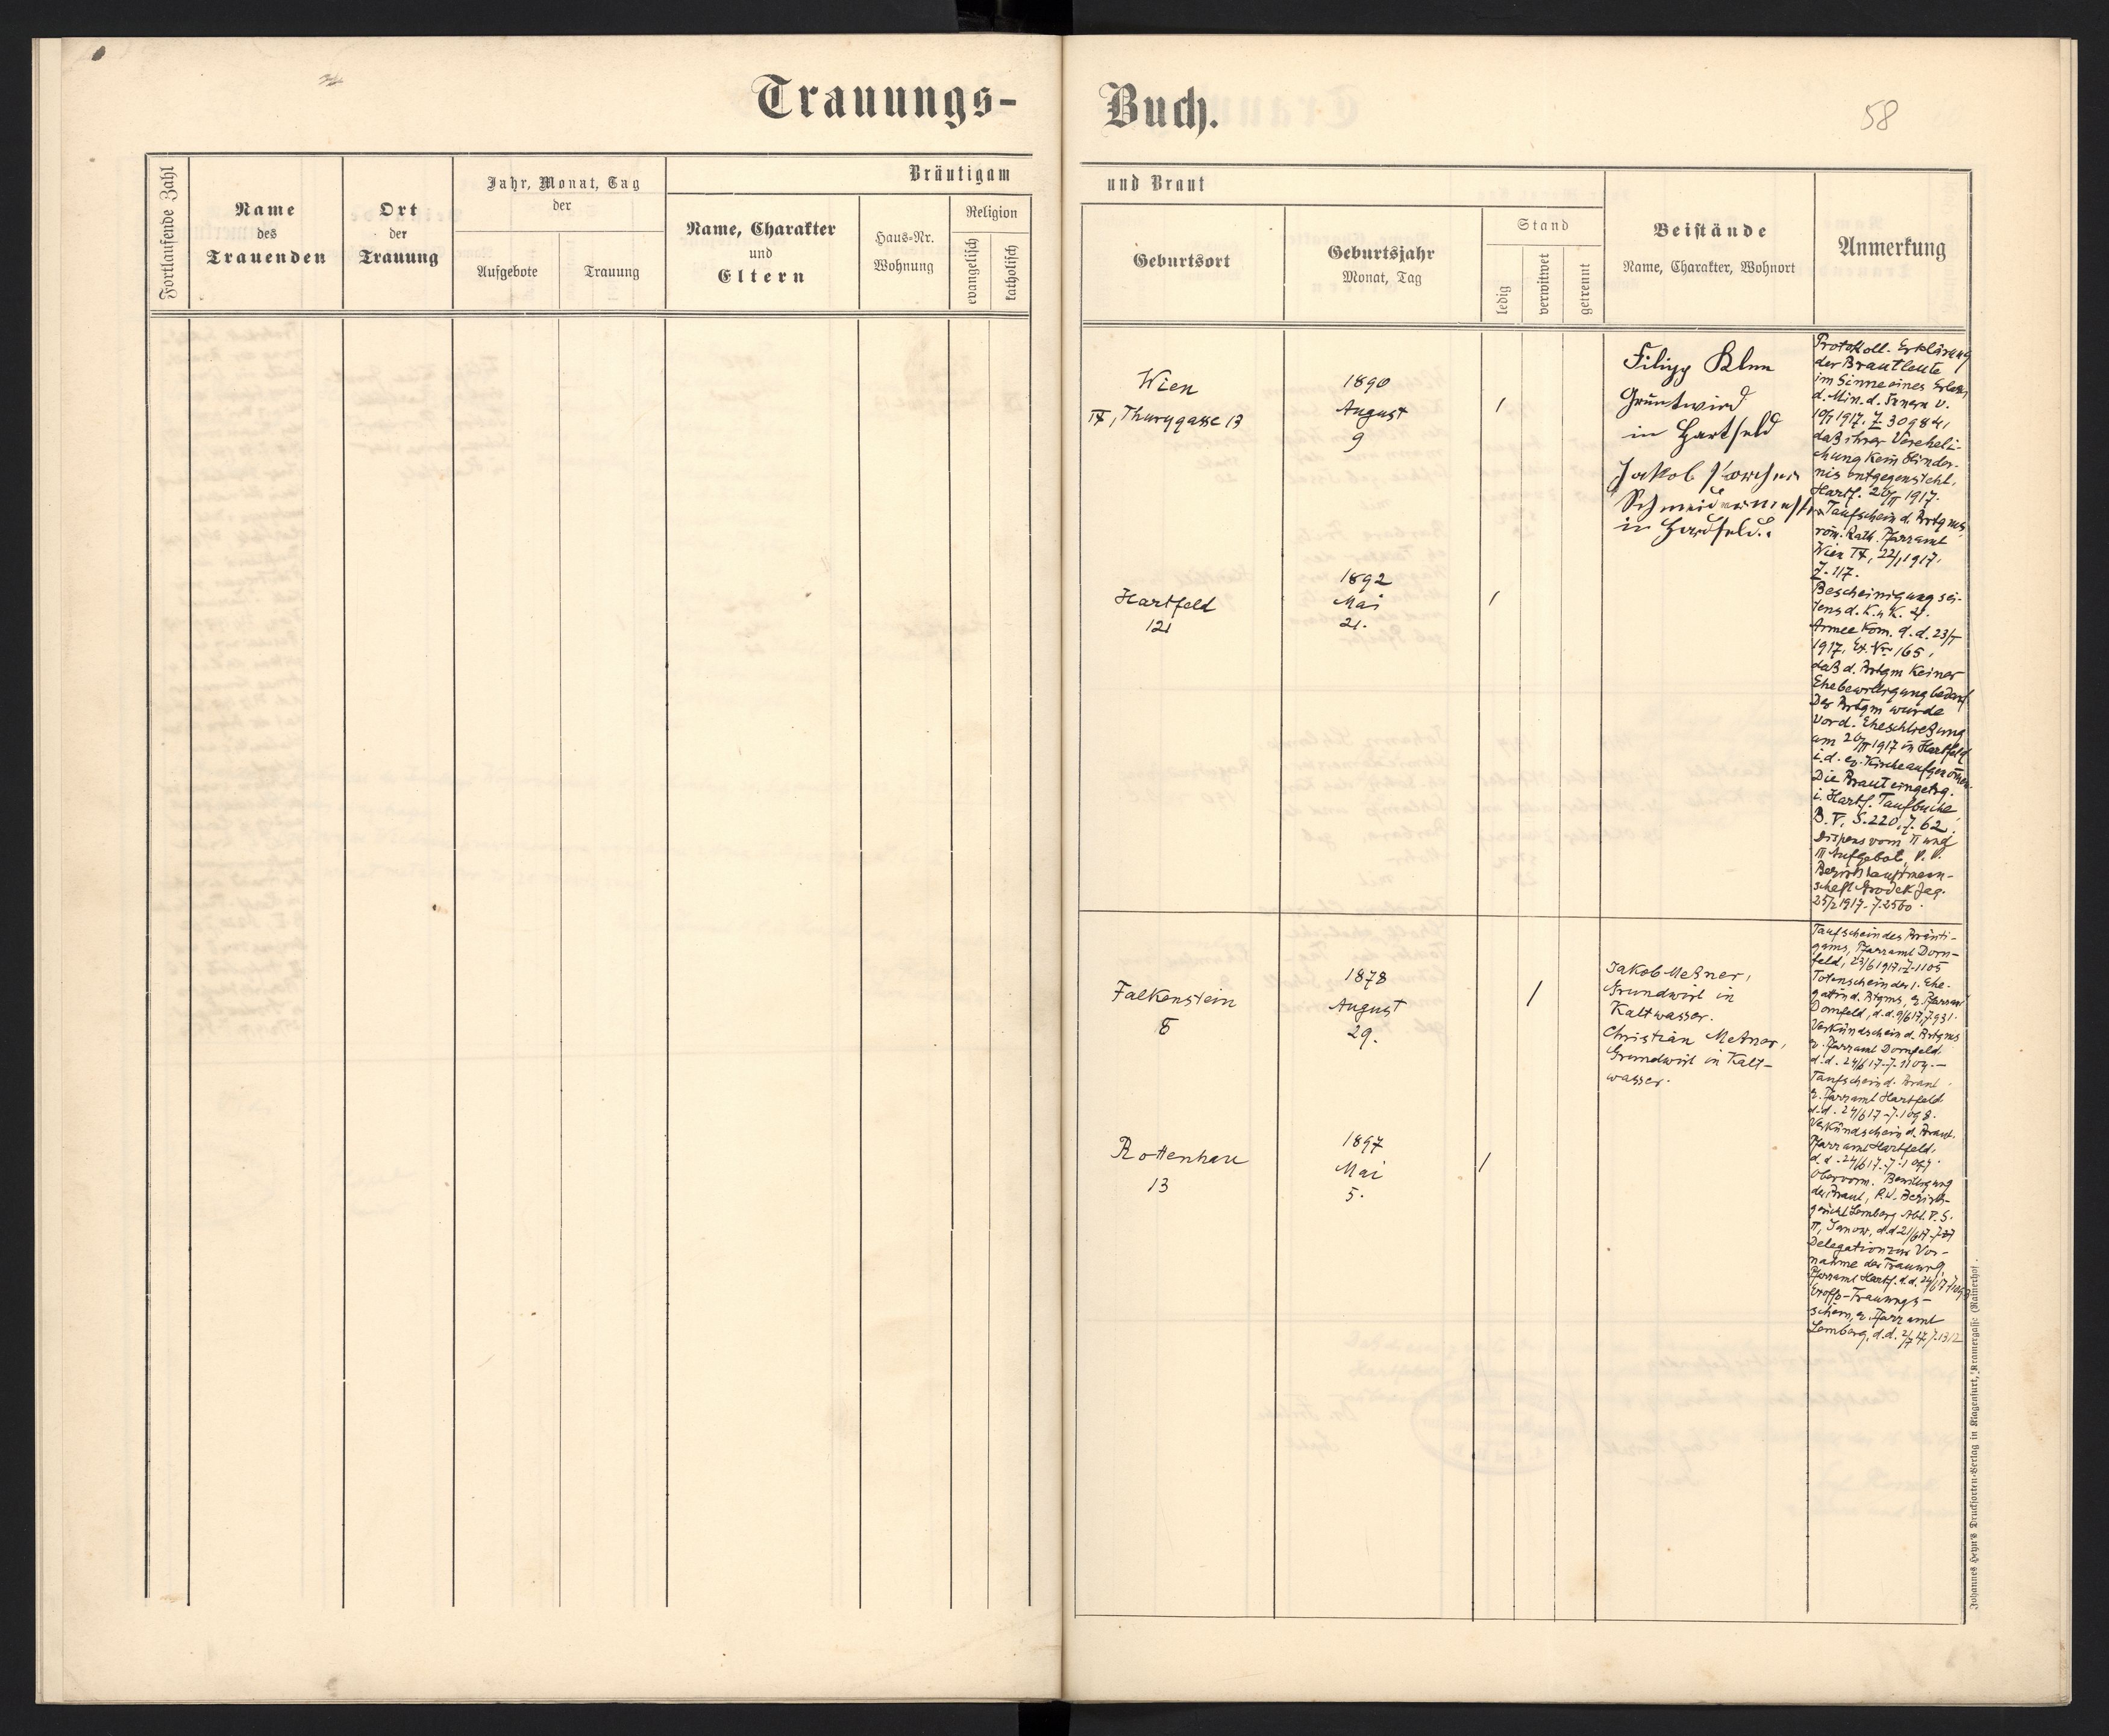 Trauungs-
Fortlaufende Zahl
Name
des
Trauenden
Ort
der
Trauung
Jahr, Monat, Tag
der
Aufgebote
Trauung
Bräutigam
Name, Charakter
und
Eltern
Haus-Nr.
Wohnung
Religion
evangelisch
katholisch
Buch.
58
und Braut
Geburtsort
Geburtsjahr
Monat, Tag
Stand
ledig
verwitwet
getrennt
Beistände
Name, Charakter, Wohnort
Anmerkung
Wien
IX, Thurygasse 13
1890
August
9
/
Filipp
Grundwird
in Hartfeld
Jakob
Schneidermeister
in Hardfeld.
Hartfeld
121
1892
Mai
21.
/
Protokoll. Erklärung
der Brautleute
im Sinne eines
d. Min. d. Innern v.
1917, Z 30984,
daß ihrer Vereheli-
chung kein Hinder-
nis entgegensteht.
Hartf. 26/II 1917.
Taufschein d. Brtgms,
röm. kath. Pfarramt
Wien IX, 22/1 1917.
Z. 117.
Bescheinigung sei-
tens d. K. u. K. 4.
Armee Kom. d. d. 23/I
1917, Ex. Nr 165,
daß d. Brtgm keiner
Ehebewilligung bedarf.
Der Brtgm wurde
vor d. Eheschließung
am 26/II 1917 in Hartfeld
i. d. ev. Kirche aufgenomen.
Die Braut eingetrg.
i. Hartf. Taufbuche,
B. V, S. 220, Z. 62.
Dispens vom II und
III Aufgebot,
Bezirkshauptmann-
schaft Grodek Jag.
25/2 1917. Z. 2560.
Falkenstein
8
1878
August
29.
/
Jakob Meßner,
Grundwirt in
Kaltwasser.
Christian Meßner,
Grundwirt in Kalt-
wasser.
Rottenhan
13
1897
Mai
5.
/
Taufschein des Bräuti-
gams, Pfarramt Dorn-
feld, 23/6 1917, Z. 1105
Totenschein der 1. Ehe-
gattin d. Brtgms, ev. Pfarramt
Dornfeld, d. d. 9/6 17, Z. 931.
Verkündschein d. Brtgms
ev. Pfarramt Dornfeld
d. d. 24/6 17. Z. 1104.—
Taufschein d. Braut
ev. Pfarramt Hartfeld
d. d. 24/6 17. Z. 1098.
Verkündschein d. Braut.
Pfarramt Hartfeld,
d. d. 24/6 17. Z. 1097.
Obervorm. Bewilligung
der Braut, Bezirks-
gericht Lemberg Abt.
Janow, d. d. 21/6 17
Delegation zur Vor-
nahme der Trauung.
Pfarramt Hartf. d. d. 24/6 17
Trauungs-
schein, ev. Pfarramt
Lemberg, d. d. Z. 1312
Johannes Heyn's Drucksorten-Verlag in Klagenfurt, Kramergasse (Rainerhof).